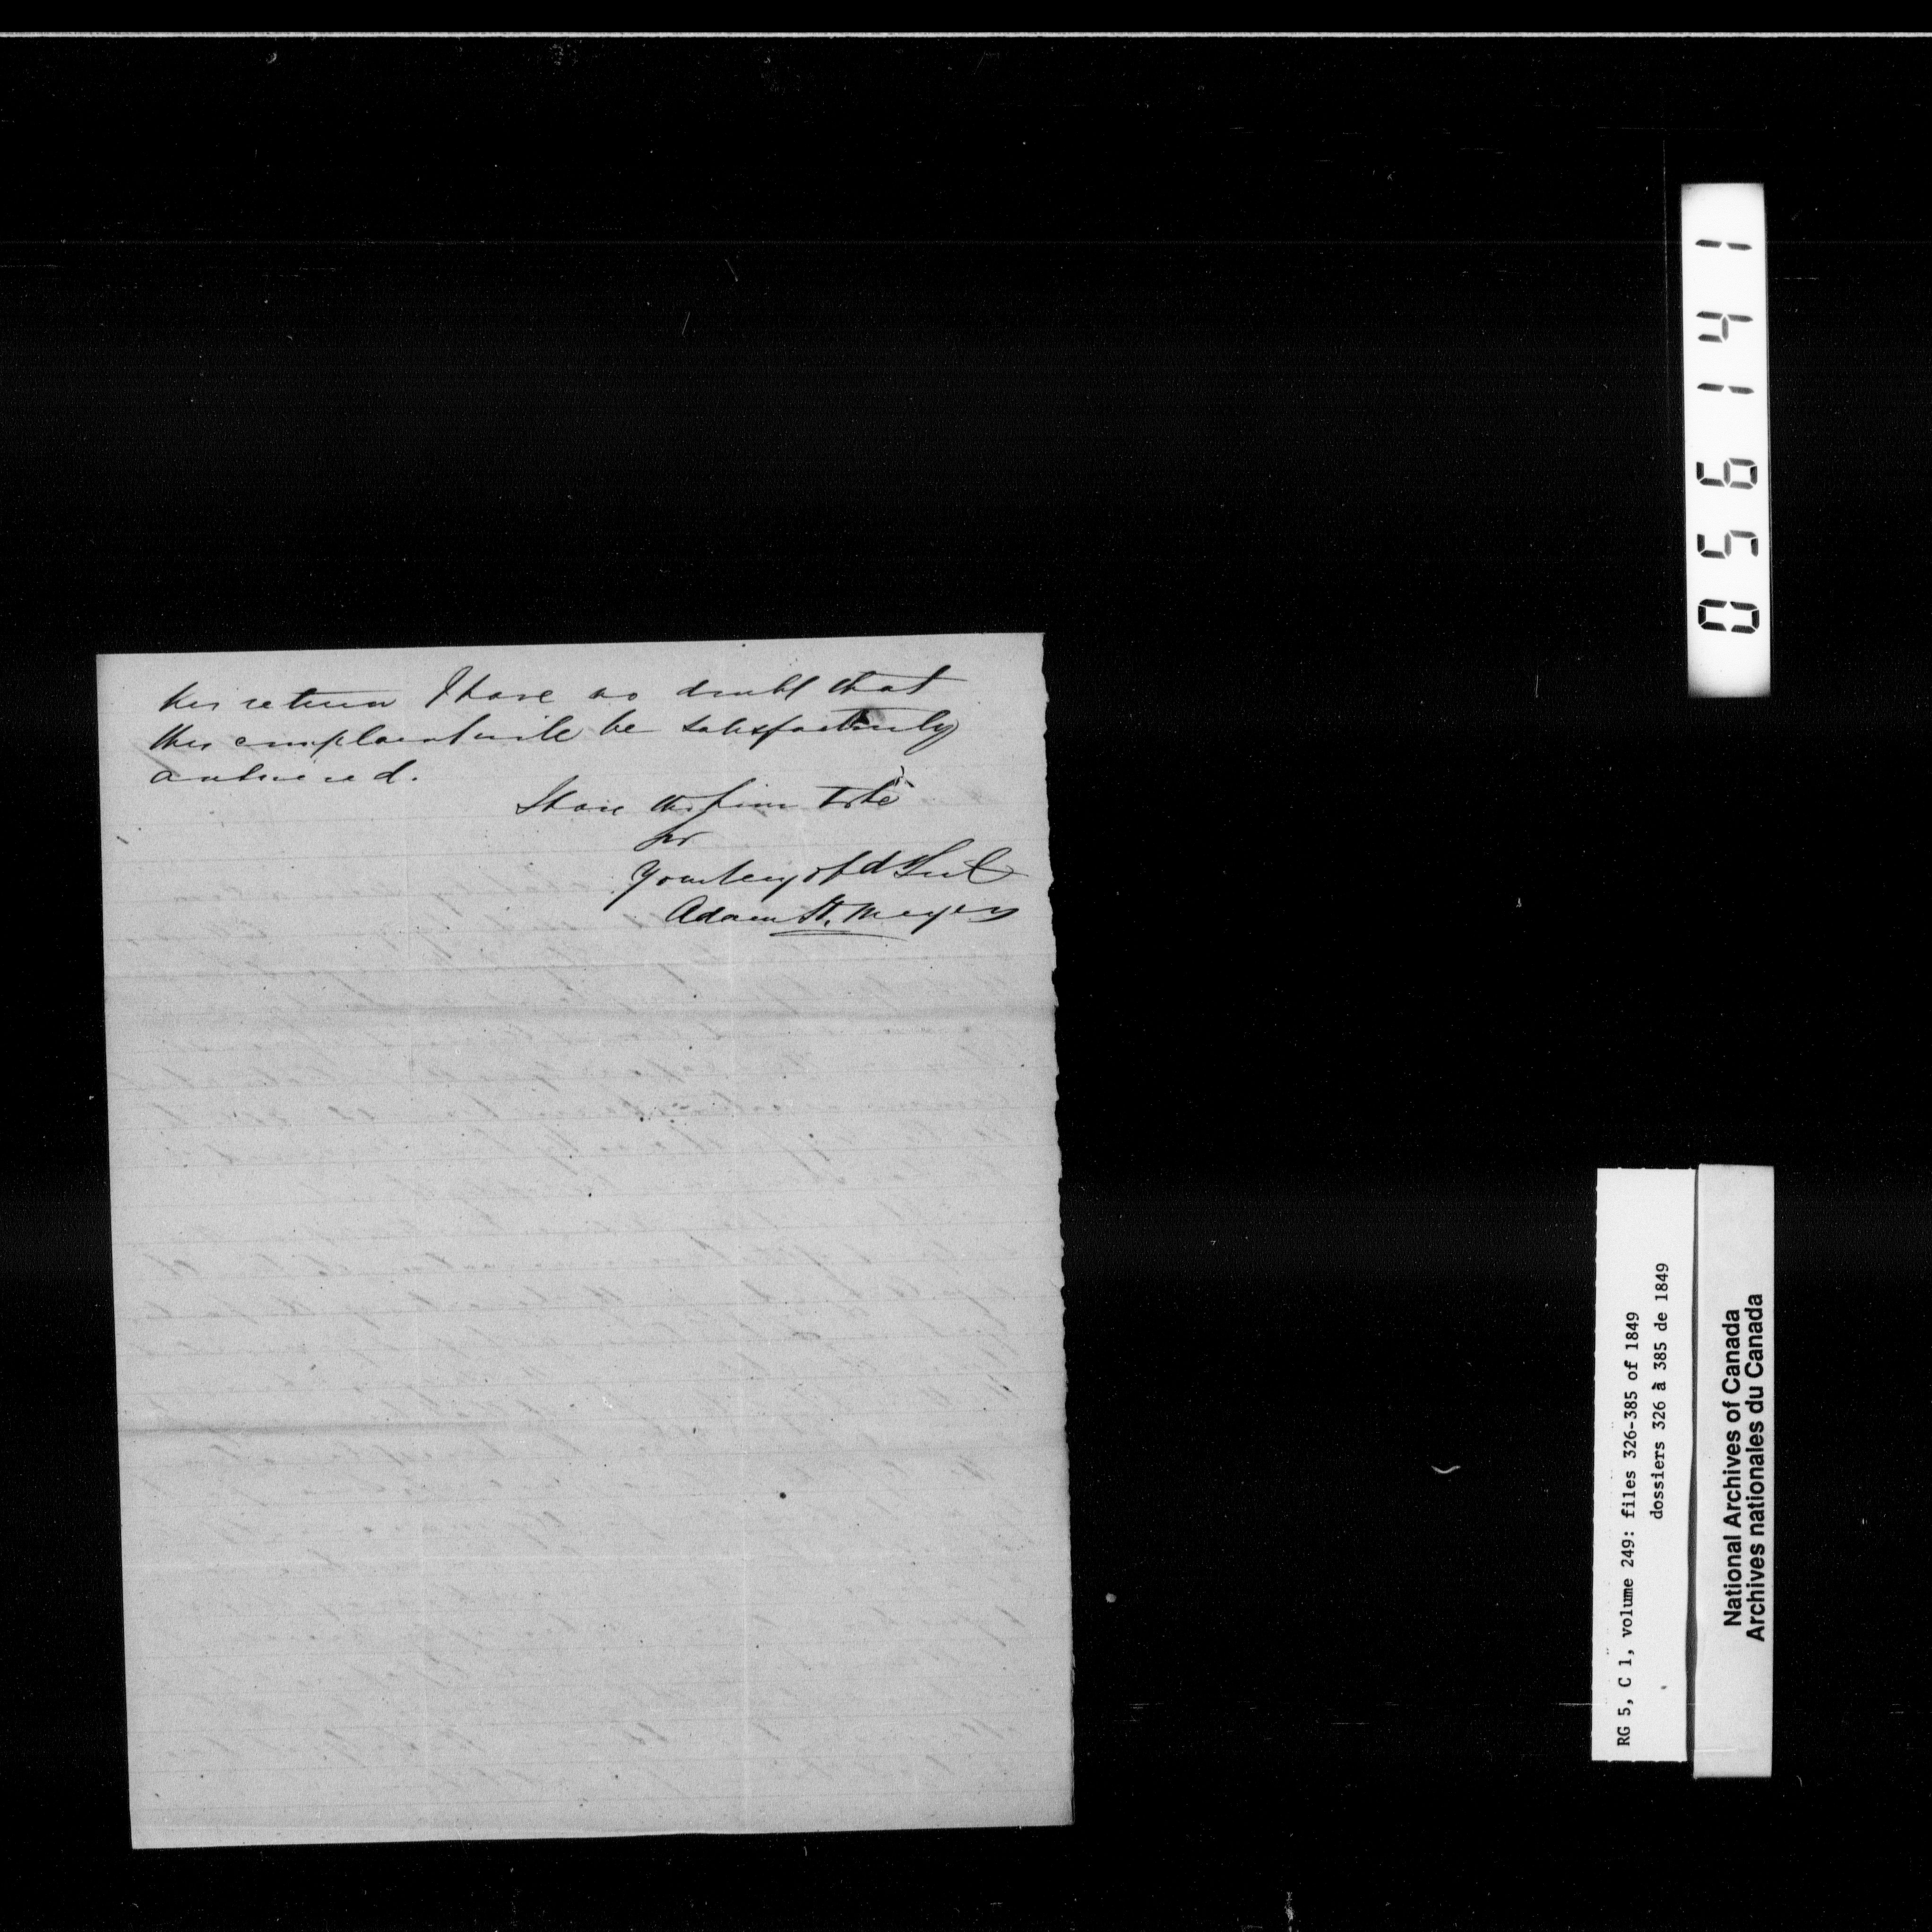 his return I have no doubt that
this complaint will be satisfactorily
answered.
I have the honor to be
Sir
Your
Adam H. Meyers
056141
RG 5, C 1, volume 249: files 326-385 of 1849
dossiers 326 à 385 de 1849
National Archives of Canada
Archives nationales du Canada